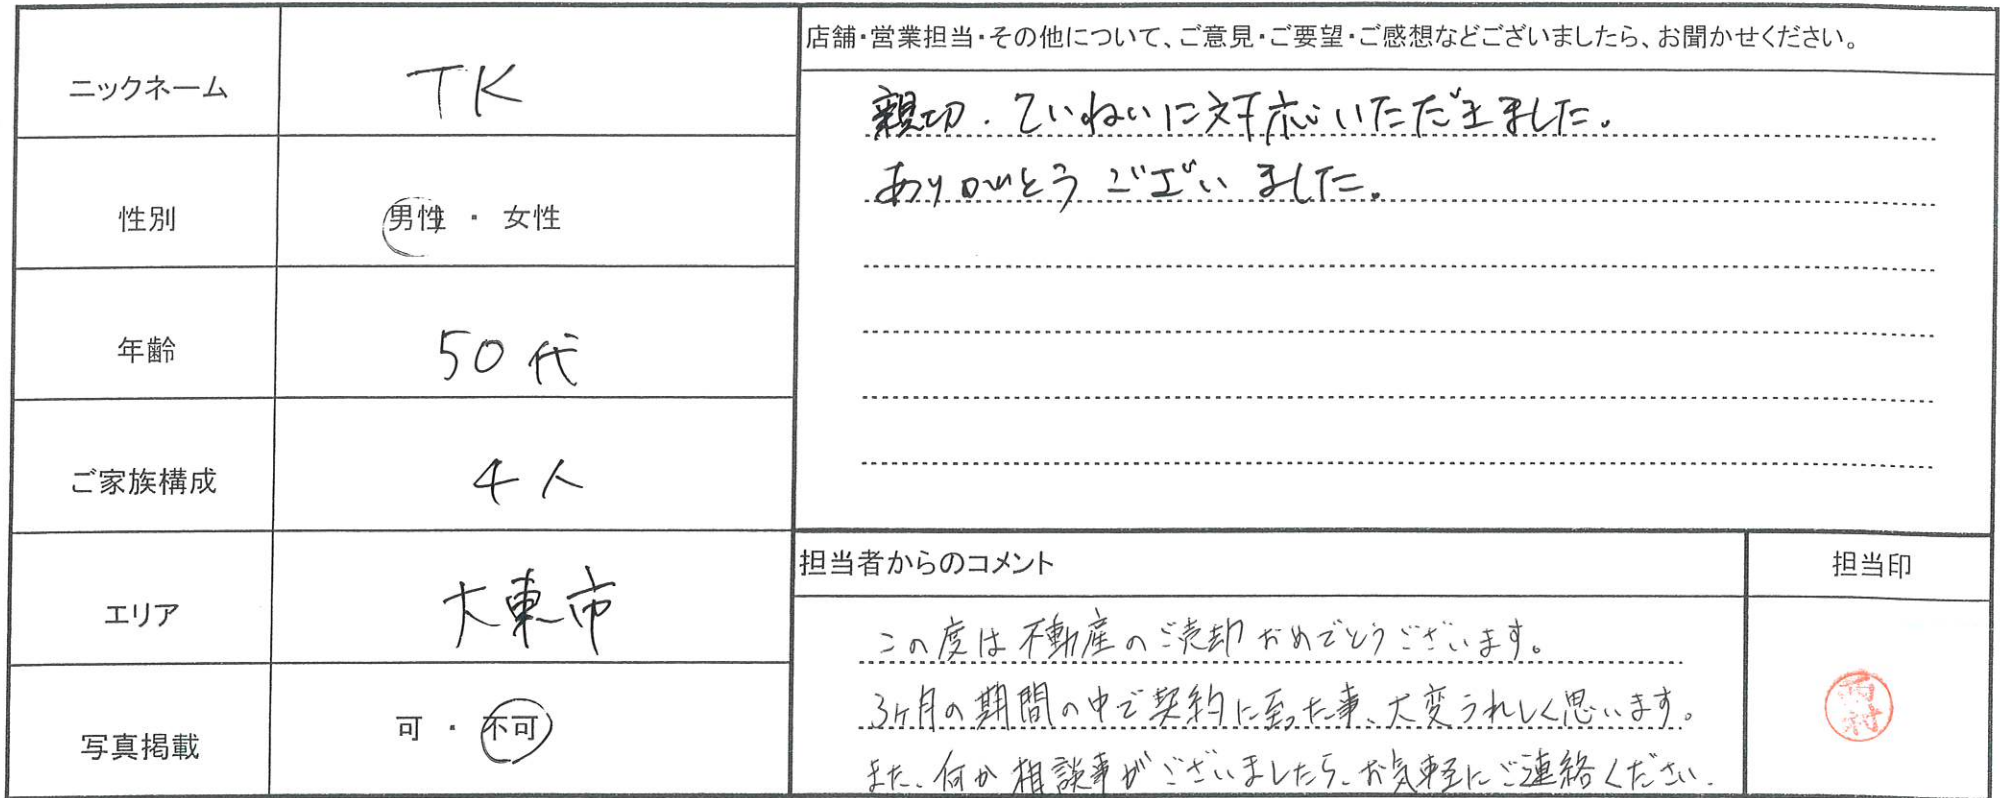 ニックネーム
TK
性別
男性 ・ 女性
年齢
50代
ご家族構成
4人
エリア
大東市
写真掲載
可 ・ 不可
店舗・営業担当・その他について、ご意見・ご要望・ご感想などございましたら、お聞かせください。
親切・ていねいに対応いただきました。
ありがとうございました。
担当者からのコメント
この度は不動産のご売却おめでとうございます。
3ヶ月の期間の中で契約に至った事、大変うれしく思います。
また、何か相談事がございましたら、お気軽にご連絡ください.
担当印